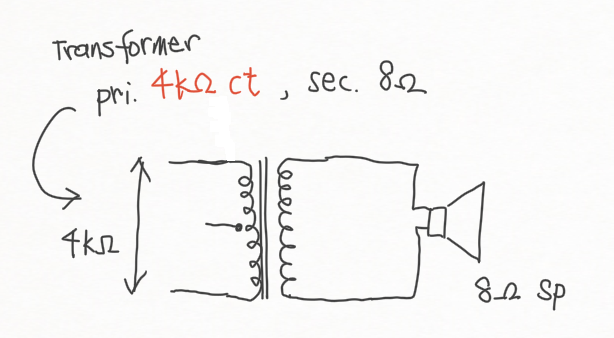 Transformer
pri. 4kΩ ct, sec. 8Ω
4kΩ
8Ω sp